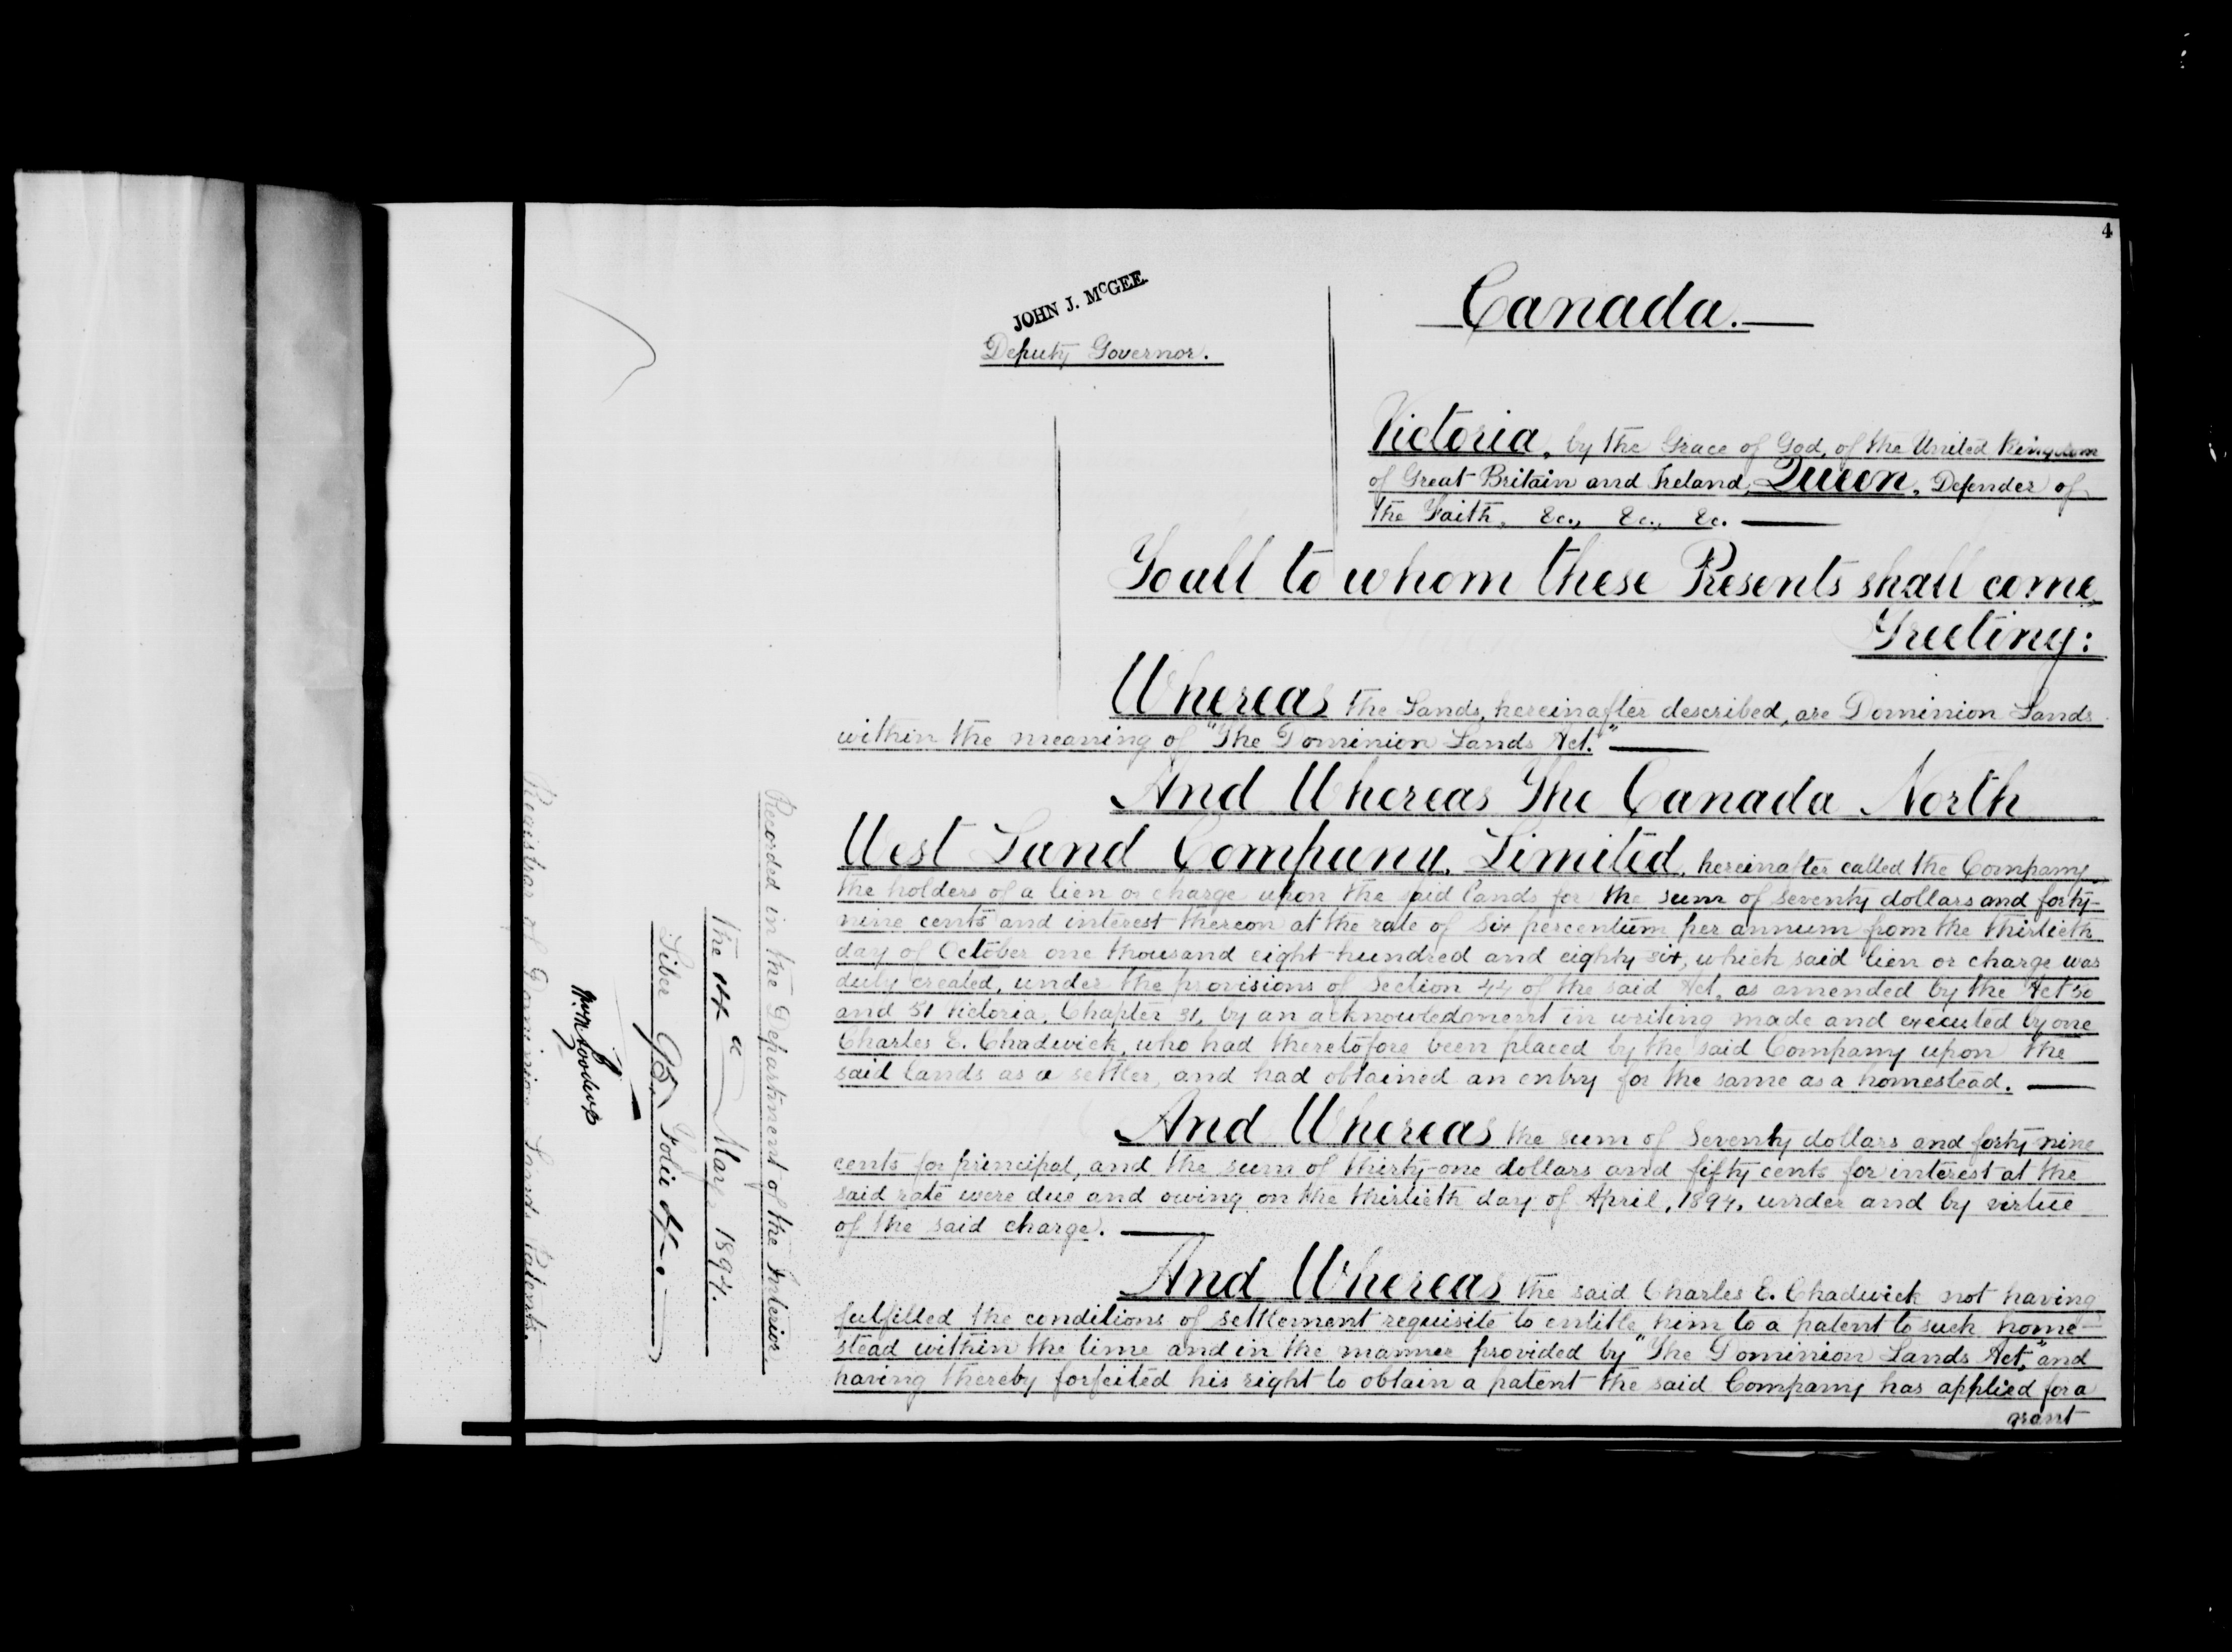 4
JOHN J. McGEE.
Deputy Governor.
Canada.
Victoria, by the Grace of God, of the United Kingdom
of Great Britain and Ireland, Queen, Defender of
the Faith, &c., &c., &c.
To all to whom these Presents shall come,
Greeting:
Whereas the Lands, hereinafter described, are Dominion Lands
within the meaning of "The Dominion Lands Act."
And Whereas The Canada North
West Land Company, Limited, hereinafter called the Company,
the holders of a lien or charge upon the said lands for the sum of seventy dollars and forty-
nine cents and interest thereon at the rate of six percentum per annum from the thirtieth
day of October one thousand eight hundred and eighty six, which said lien or charge was
duly created, under the provisions of Section 44 of the said Act, as amended by the Act 50
and 51 Victoria, Chapter 31, by an acknowledgment in writing made and executed by one
Charles E. Chadwick, who had theretofore been placed by the said Company upon the
said lands as a settler, and had obtained an entry for the same as a homestead.
And Whereas the sum of Seventy dollars and forty nine
cents for principal, and the sum of thirty-one dollars and fifty cents for interest at the
said rate were due and owing on the thirtieth day of April, 1894, under and by virtue
of the said charge.
And Whereas the said Charles E. Chadwick not having
fulfilled the conditions of settlement requisite to entitle him to a patent to such home
stead within the time and in the manner provided by "The Dominion Lands Act," and
having thereby forfeited his right to obtain a patent the said Company has applied for a
grant
Recorded in the Department of the Interior
the May 1894.
Liber 95, Folio 4
Registrar of Dominion Lands Patents.